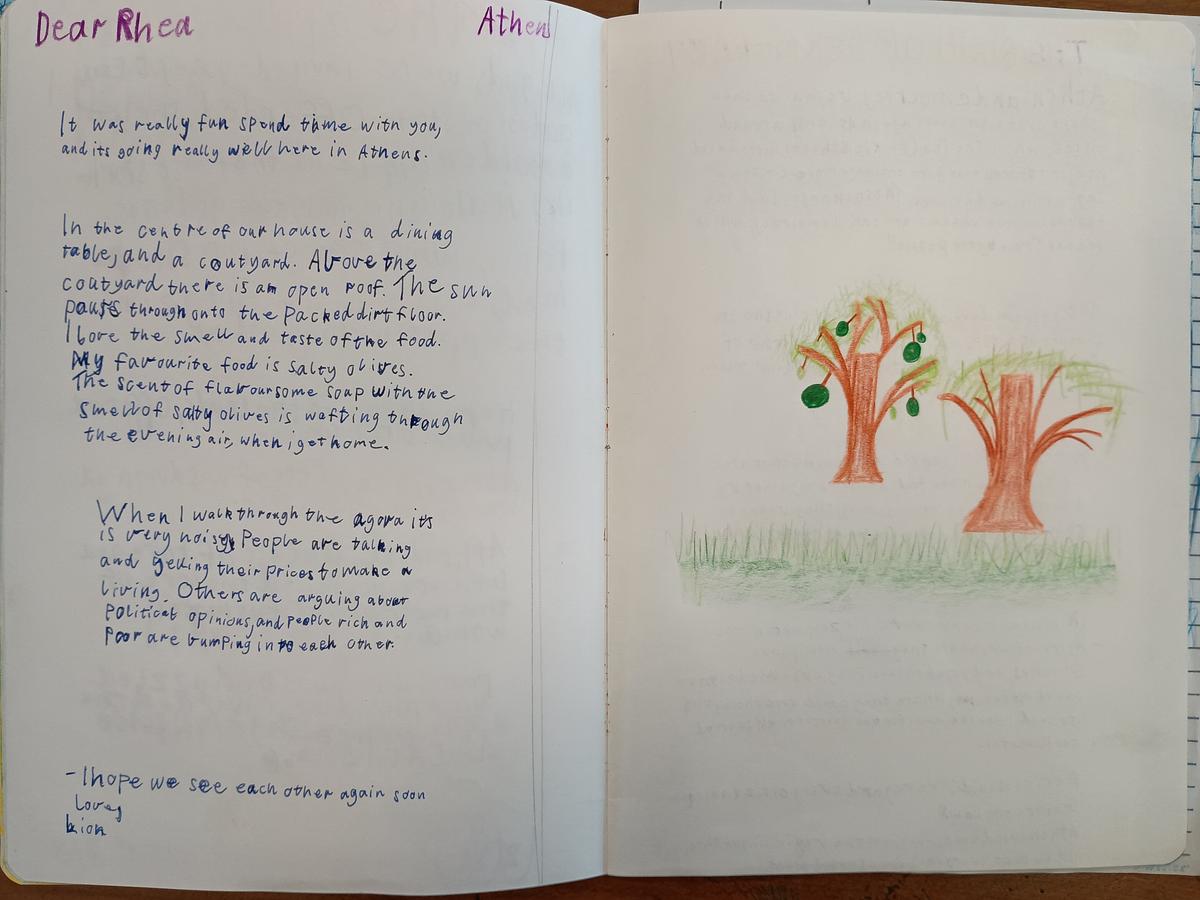 Dear Rhea
Athens
It was really fun spend time with you,
and its going really well here in Athens.
In the centre of our house is a dining
table, and a coutyard. Above the
coutyard there is am open roof. The sun
through onto the packed dirt floor.
I love the smell and taste of the food.
My favourite food is salty olives.
The scent of flavoursome soup with the
smell of salty olives is wafting through
the evening air, when i get home.
When I walk through the agora its
is very noisy. People are talking
and yelling their prices to make a
living. Others are arguing about
political opinions, and people rich and
poor are bumping into each other.
- I hope we see each other again soon
love,